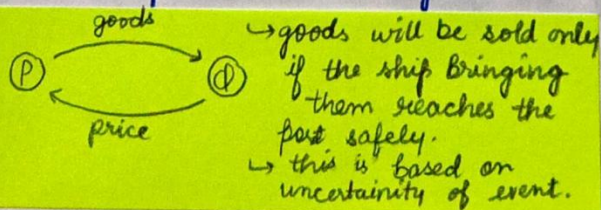 goods
P
price
↳goods will be sold only
if the ship Bringing
them reaches the
port safely.
↳ this is based on
uncertainity of event.